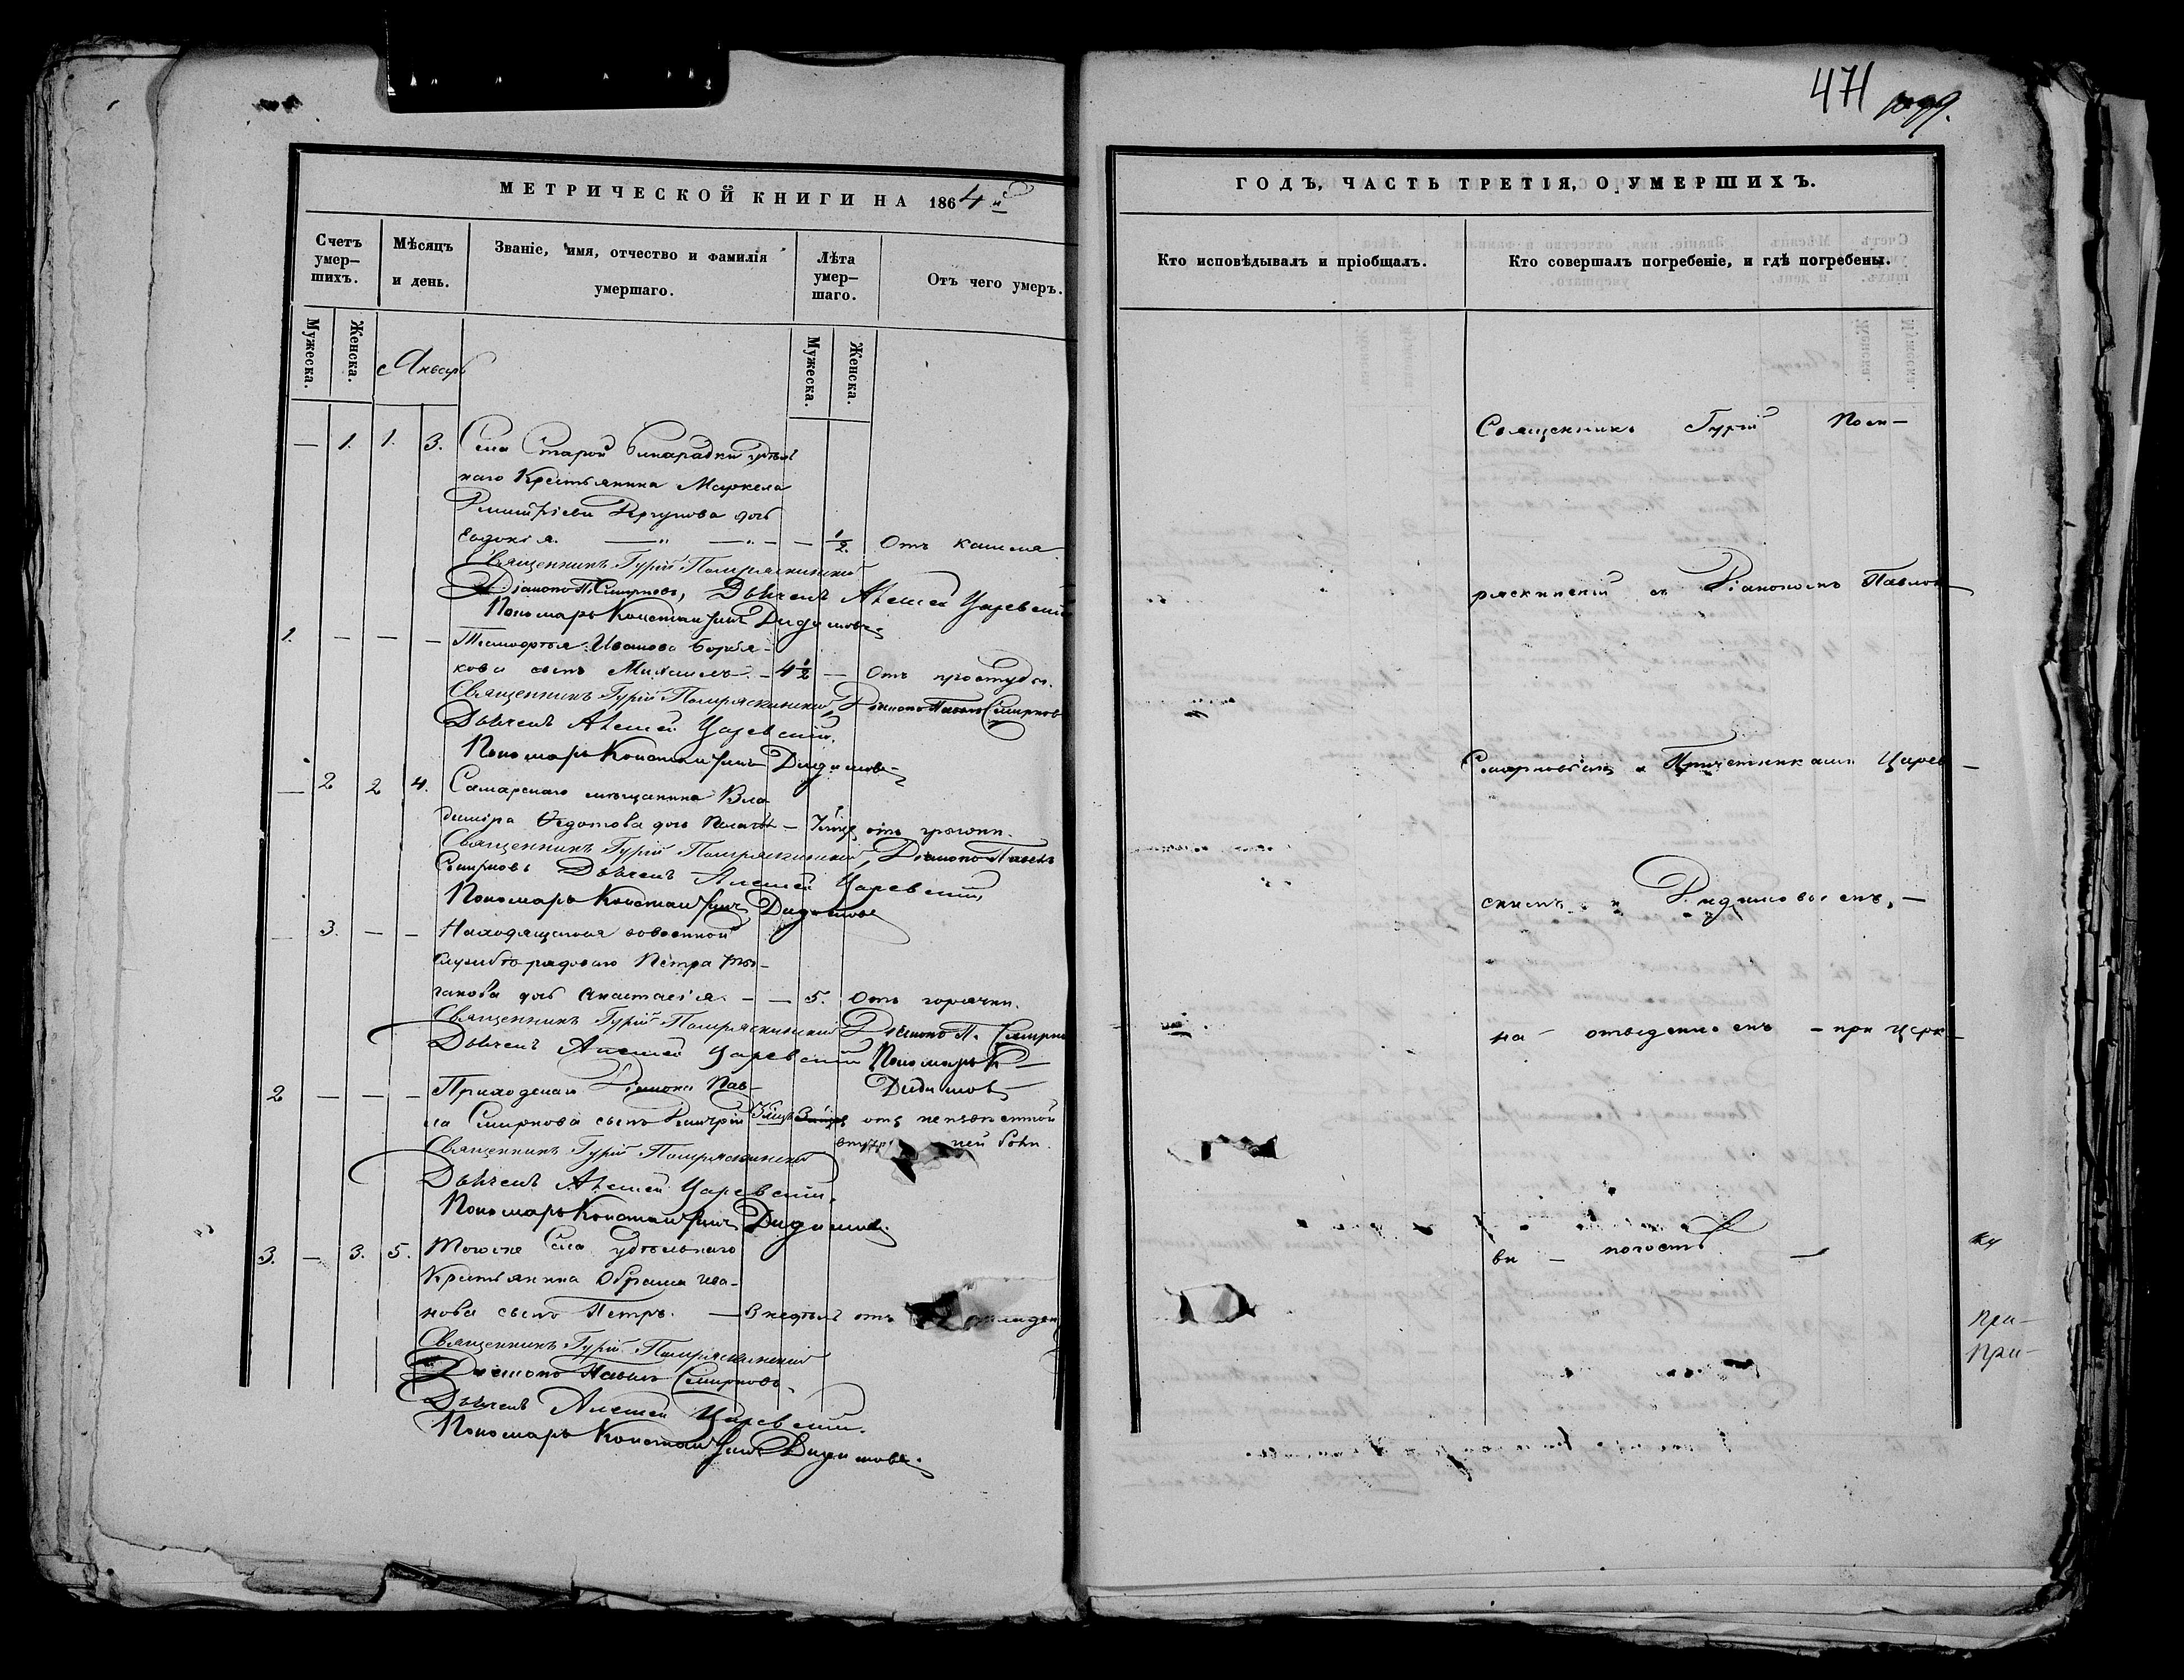 471
МЕТРИЧЕСКОЙ КНИГИ НА 1864й
Счетъ умер-шихъ.
Мѣсяцъ и день.
Званіе, имя, отчество и фамилія умершаго.
Лѣта умер-шаго.
Отъ чего умеръ.
Мужеска.
Женска.
Январь
Мужеска.
Женска.
— 1. 1. 3. Села Старой Бинарадки удѣль
наго Крестьянина Маркела
Димитріева дочь
Евдокія. — — — 1/2. Отъ кашля
Священникъ Гурій Помряскинскій
Діаконъ П. Смирновъ, Дьячекъ Алексей Царевскій
Пономарь Константинъ Дидимовъ
1. — — — Тимофея Иванова
кова сынъ Михаилъ. — 4 1/2 — Отъ простуды.
Священникъ Гурій Помряскинскій, Діаконъ Павелъ Смирновъ
Дьячекъ Алексей Царевскій.
Пономарь Константинъ Дидимовъ
— 2 2 4. Самарскаго мещанина Вла
диміра Федотова дочь — отъ грыжи.
Священникъ Гурій Помряскинскій, Діаконъ Павелъ
Смирновъ Дьячекъ Алексей Царевскій
Пономарь Константинъ Дидимовъ
— 3. — — Находящагося въ военной
службѣ рядоваго Петра
дочь Анастасія. — — 5. Отъ горячки.
Священникъ Гурій Помряскинскій Діаконъ П. Смирно
Дьячекъ Алексей Царевскій Пономарь К
Дидимовъ
2 — — — Приходскаго Діакона Пав-
ла Смирнова сынъ Димитрій отъ неизвѣстной
ней боли.
Священникъ Гурій Помряскинскій
Дьячекъ Алексей Царевскій.
Пономарь Константинъ Дидимовъ.
3. — 3. 5. Тогоже Села удѣльнаго
Крестьянина Абрама Ива-
нова сынъ Петръ. — 3 недѣль отъ младен
Священникъ Гурій Помряскинскій
Діаконъ Павелъ Смирновъ.
Дьячекъ Алексей Царевскій.
Пономарь Константинъ Дидимовъ.
ГОДЪ, ЧАСТЬ ТРЕТІЯ, О УМЕРШИХЪ.
Кто исповѣдывалъ и пріобщалъ.
Кто совершалъ погребеніе, и гдѣ погребены.
Священникъ Гурій Пом-
ряскинскій съ Діакономъ Павлом
Смирновымъ и Причетниками Царев-
скимъ и Дидимовымъ, —
на отведенномъ — при церк-
ви — погостѣ —
при-
при-